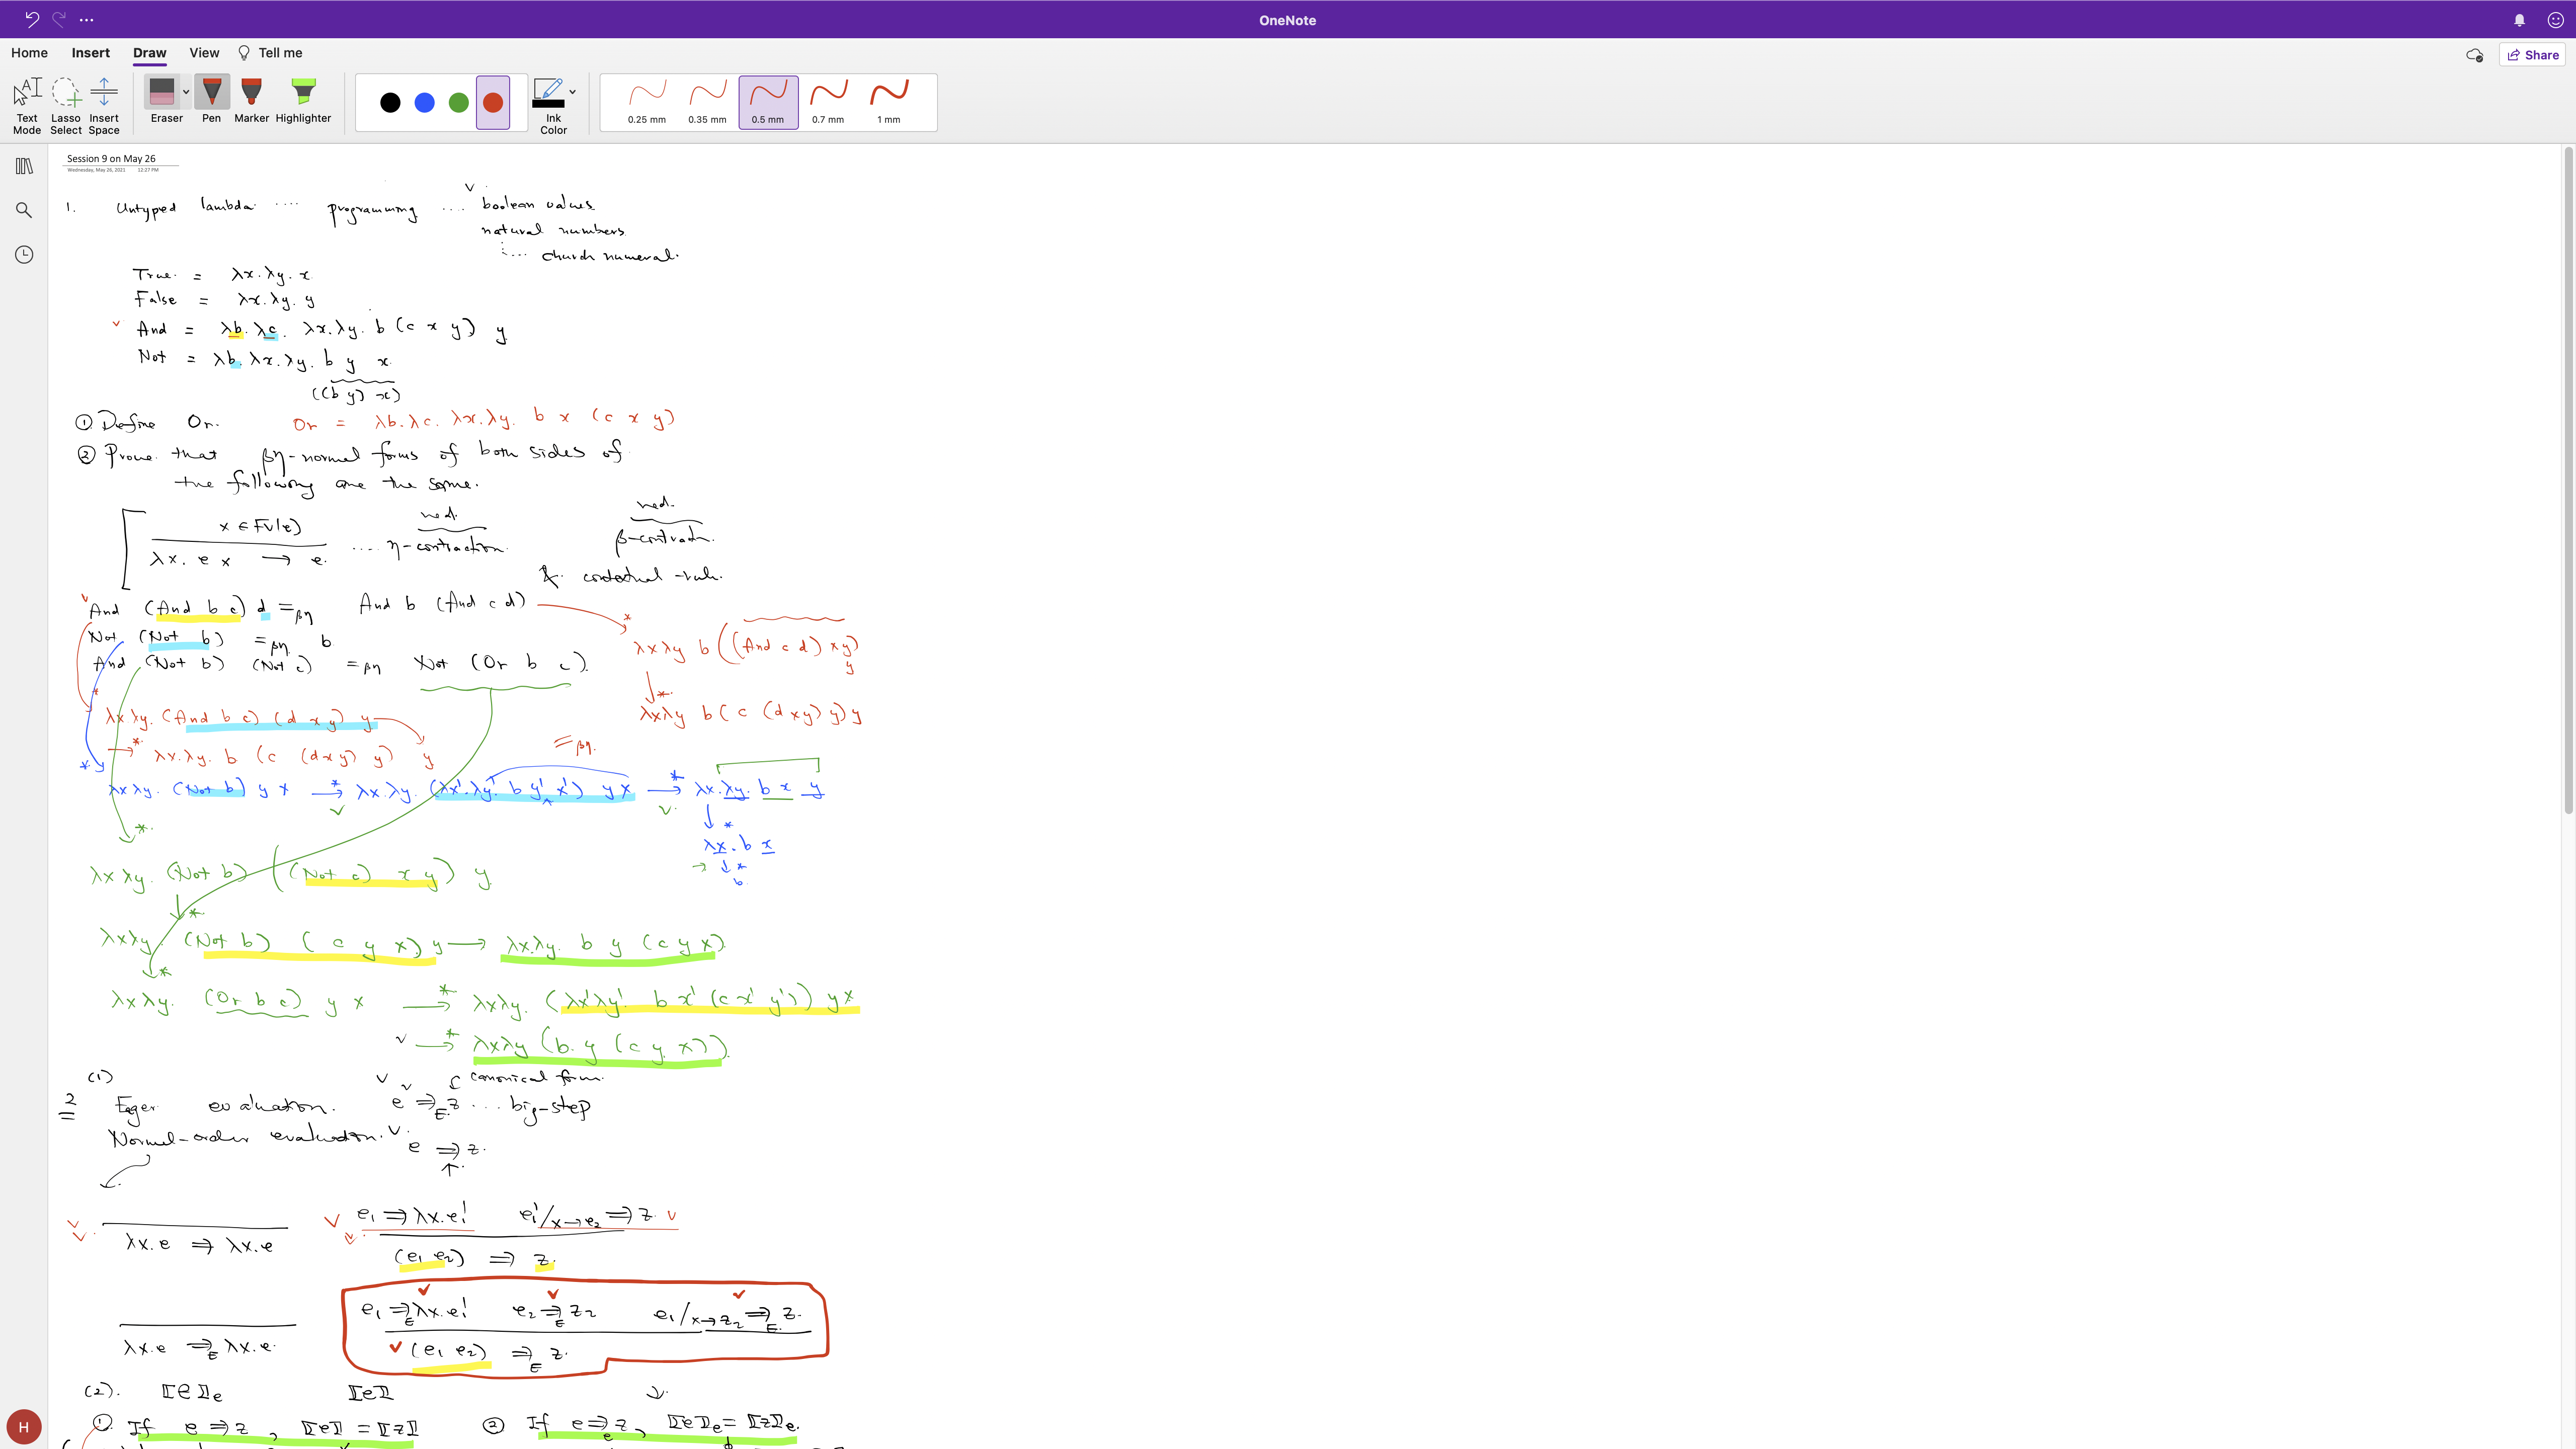 OneNote
Home Insert Draw View Tell me
Share
Text Mode
Lasso Select
Insert Space
Eraser
Pen
Marker
Highlighter
Ink Color
0.25 mm
0.35 mm
0.5 mm
0.7 mm
1 mm
Session 9 on May 26
Wednesday, May 26, 2021 12:27 PM
1. Untyped lambda .... programming .... boolean values
natural numbers
... church numeral.
True = λx.λy. x
False = λx.λy. y
And = λb.λc. λx.λy. b (c x y) y
Not = λb.λx.λy. b y x
((b y) x)
① Define Or. Or = λb.λc. λx.λy. b x (c x y)
② Prove that βη-normal forms of both sides of
the following are the same.
red. red.
x ∈ FV(e)
λx. e x → e .... η-contraction
& contextual rule.
And (And b c) d =βη And b (And c d)
Not (Not b) =βη b
And (Not b) (Not c) =βη Not (Or b c).
* λxλy b ((And c d) x y) y
↓* λxλy b (c (d x y) y) y
λxλy. (And b c) (d x y) y
→* λx.λy. b (c (d x y) y) y
=βη.
* λxλy. (Not b) y x →* λx.λy. (λx'.λy'. b y' x') y x →* λx.λy. b x y
↓*
λx. b x
→ ↓*
b
*
λxλy. (Not b) ((Not c) x y) y
↓*
λxλy. (Not b) (c y x) y → λx.λy. b y (c y x).
*
λxλy. (Or b c) y x →* λxλy. (λx'λy'. b x' (c x' y')) y x
→* λxλy (b y (c y x)).
2 (1)
canonical form.
Eager evaluation. e ⇒E z ... big-step
Normal-order evaluation. e ⇒ z.
e₁ ⇒ λx.e₁' e₁'/x→e₂ ⇒ z
λx.e ⇒ λx.e
(e₁ e₂) ⇒ z.
e₁ ⇒E λx.e₁' e₂ ⇒E z₂ e₁/x→z₂ ⇒E z.
λx.e ⇒E λx.e.
(e₁ e₂) ⇒E z.
(2). ⟦e⟧e ⟦e⟧
① If e ⇒ z, ⟦e⟧ = ⟦z⟧ ② If e ⇒e z, ⟦e⟧e = ⟦z⟧e.
H